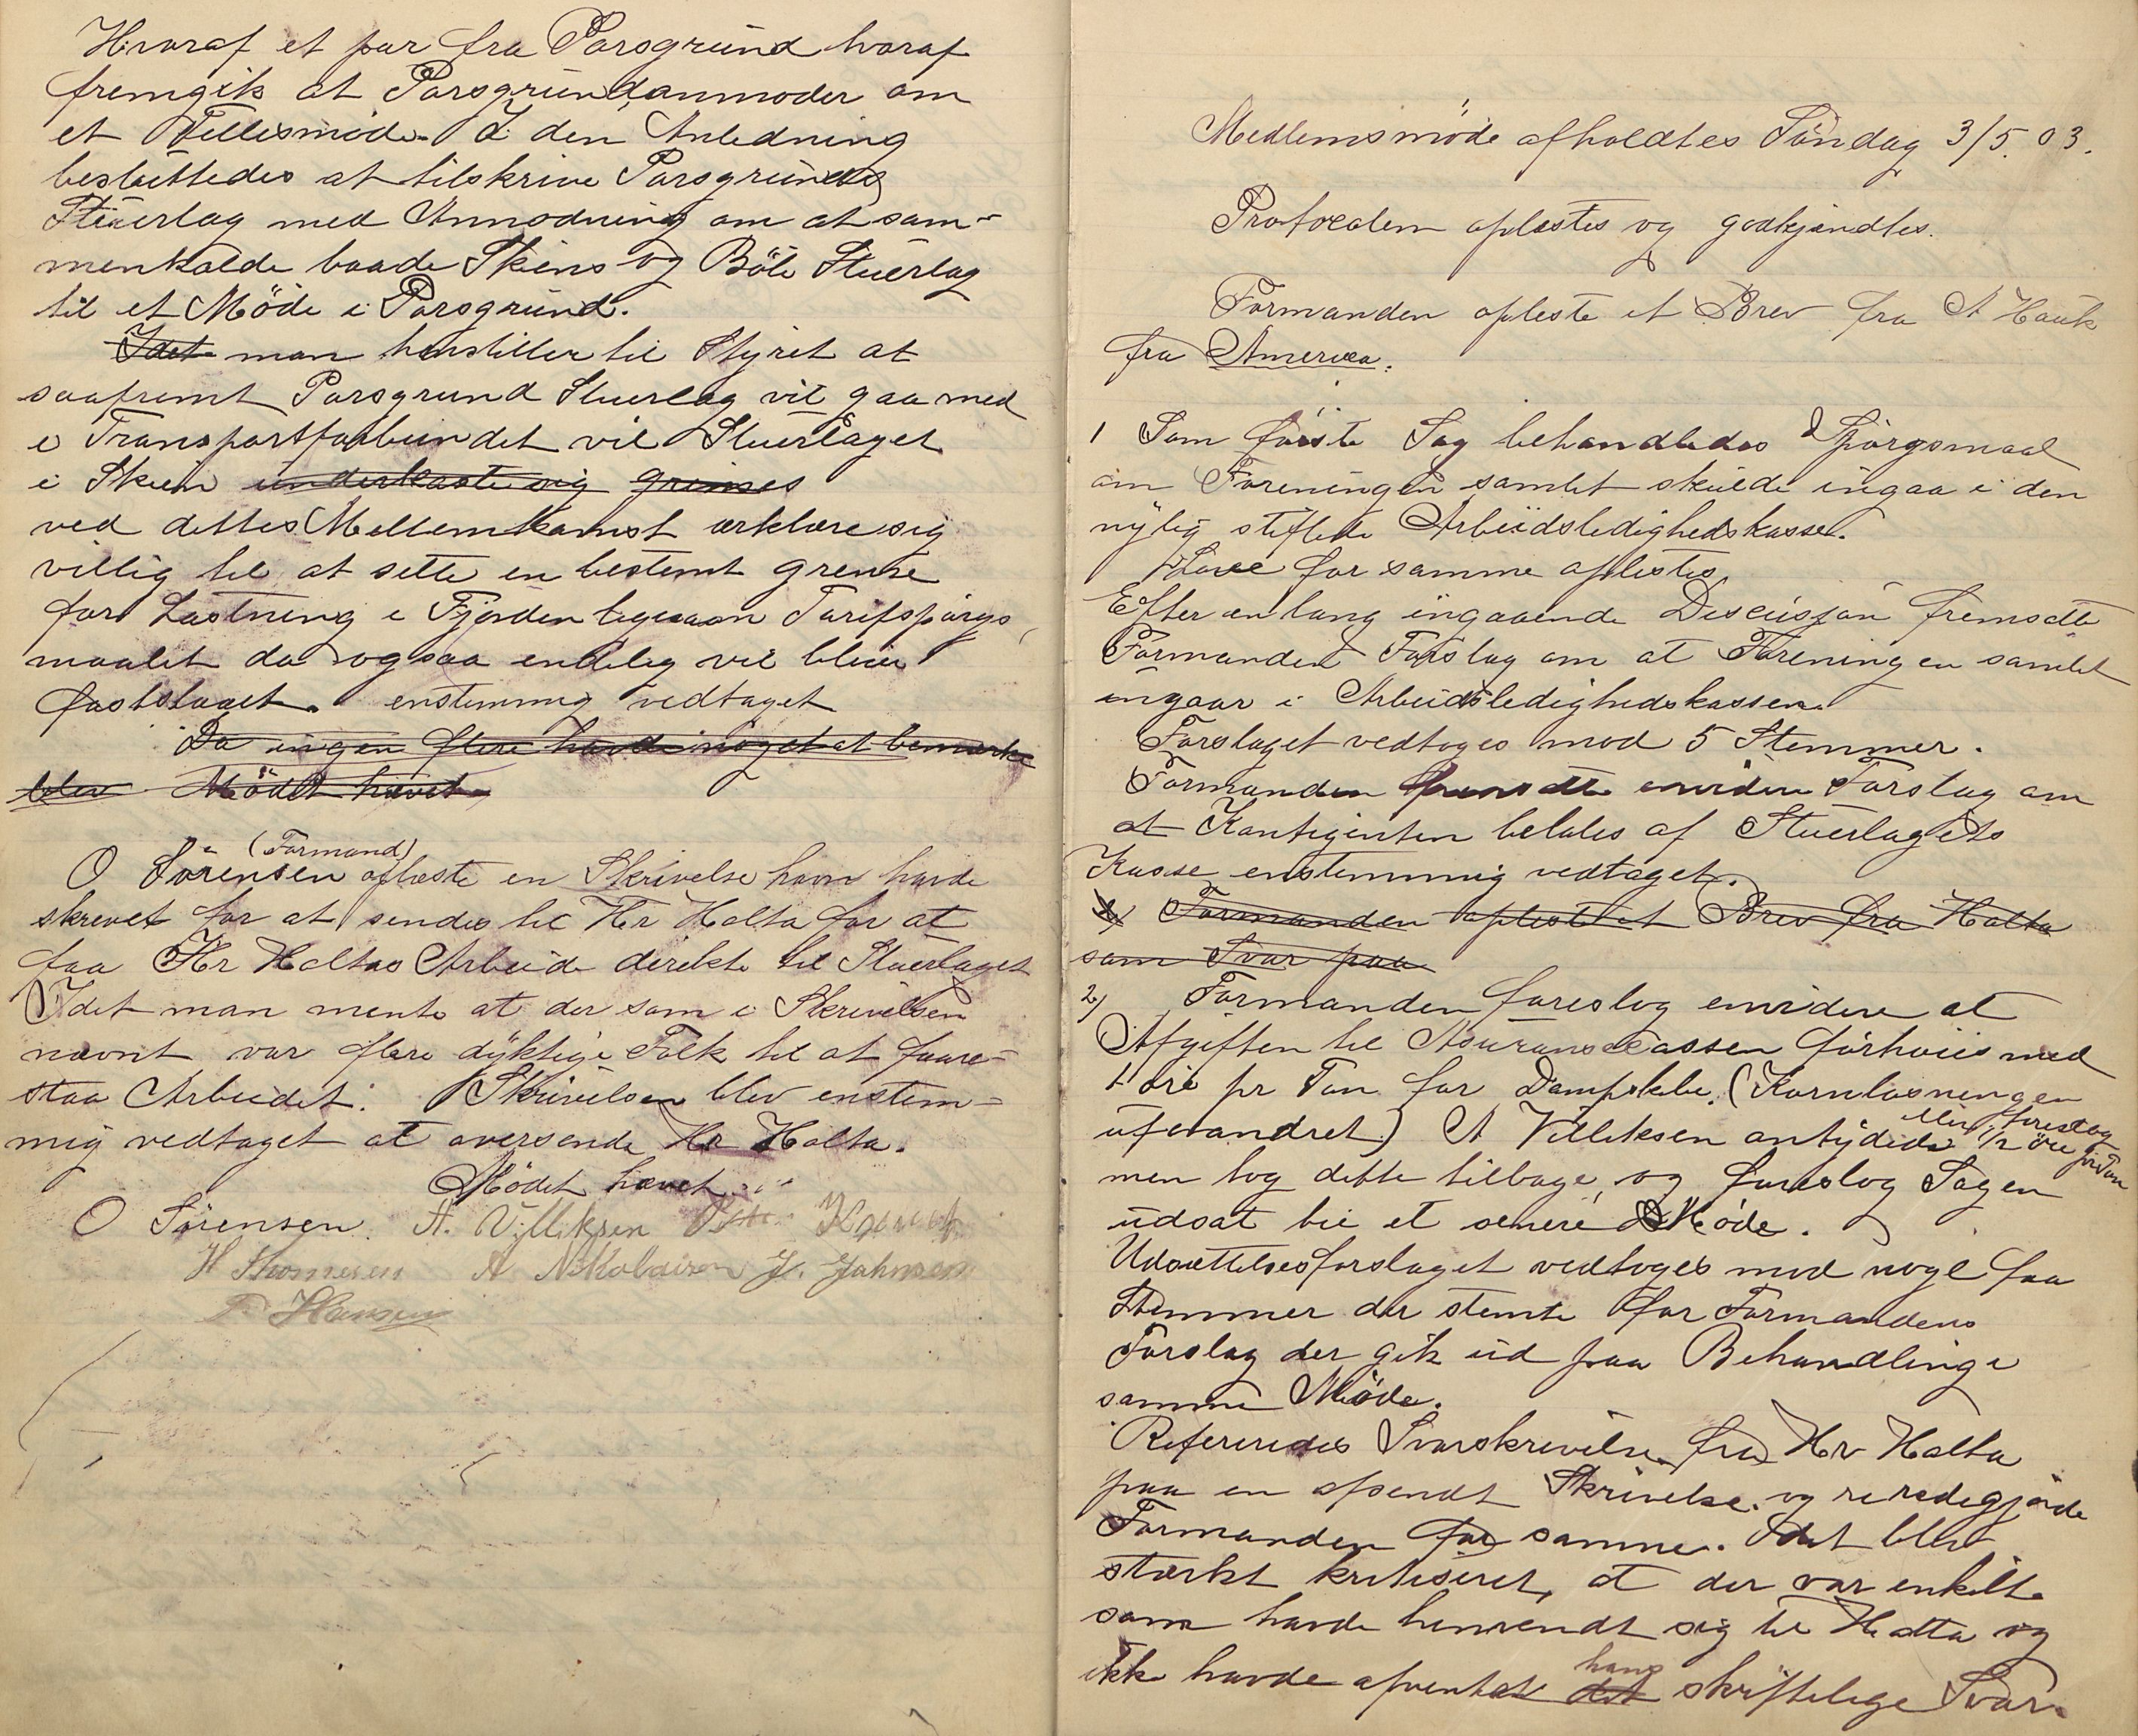 Hvoraf et par fra Porsgrund hvoraf
fremgik at Porsgrund anmoder om
et Fellesmöde. I den Anledning
besluttedes at tilskrive Porsgrunds
Stuerlag med Anmodning om at sam-
menkalde baade Skiens og Böle Stuerlag
til et Möde i Porsgrund.
Idet man henstiller til Styret at
saafremt Porsgrund Stuerlag vil gaa med
i Transportforbundet vil Stuerlaget
i Skien underkaste sig grenses
ved dettes Mellemkomst erklære sig
villig til at sette en bestemt grense
for Lastning i Fjorden ligesaa Tarifspörgs
maalet da ogsaa endelig vil blive
fastslaaet. enstemmig vedtaget
Da ingen flere havde noget at bemerke
blev Mödet hævet
(Formand)
O Sörensen oplæste en Skrivelse ham havde
skrevet for at sendes til Hr Holta for at
faa Hr Holtas Arbeide direkte til Stuerlaget
Idet man mente at der som i Skrivelsen
nævnt var flere dyktige Folk til at faare-
staa Arbeidet. Skrivelsen blev enstem-
mig vedtaget at oversende Hr Holta.
Mödet hævet
O Sörensen. A. Villiksen
H Thomesen A Nikolaisen J. Johnsen
Hansen
Medlemsmöde afholdtes Söndag 3/5. 03.
Protocolen oplestes og godkjendtes.
Formanden opleste et Brev fra A Hauk
fra America.
1 Som förste Sag behandledes Spörgsmaal
om Foreningen samlet skulde ingaa i den
nylig stiftede Arbeidsledighedskasse.
Love for samme oplestes
Efter en lang ingaaende Discusjon fremsatte
Formanden Forslag om at Foreningen samlet
ingaar i Arbeidsledighedskassen.
Forslaget vedtoges mod 5 Stemmer.
Formanden fremsatte envidere Forslag om
at Kontigenten betales af Stuerlagets
Kasse enstemmig vedtaget.
2) Formanden oplest et Brev fra Holta
som Svar paa
2) Formanden foreslog envidere at
Afgiften til Asuransecassen forhöies med
1 öre pr Ton for Dampskibe. (Kornlosningen
uforandret) A Villiksen antydede eller foreslog 1/2 öre pr Ton
men tog dette tilbage, og foreslog Sagen
udsat til et senere Möde.
Udsættelsesforslaget vedtoges mod nogle faa
Stemmer der stemte for Formandens
Forslag der gik ud paa Behandling i
samme Möde.
Refereredes Svarskrivelse fra Hr Holta
paa en afsendt Skrivelse. og reredegjorde
Formanden for samme. Idet blev
stærkt kritiseret, at der var enkelte
som havde henvendt sig til Holta og
ikke havde afventet det hans skriftelige Svar.